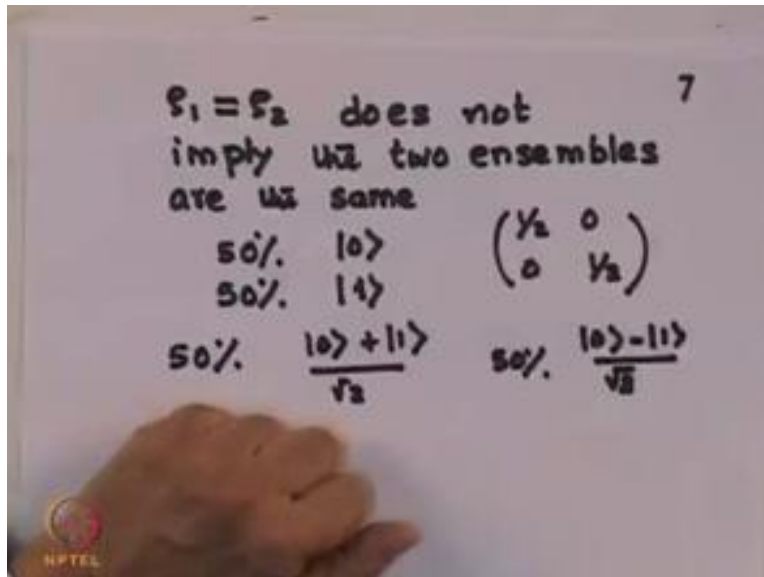 7
ρ₁ = ρ₂ does not
imply the two ensembles
are the same
50%. |0>
50%. |1>
(1/2 0
0 1/2)
50%. |0> + |1> / √2 50%. |0> - |1> / √2
NPTEL